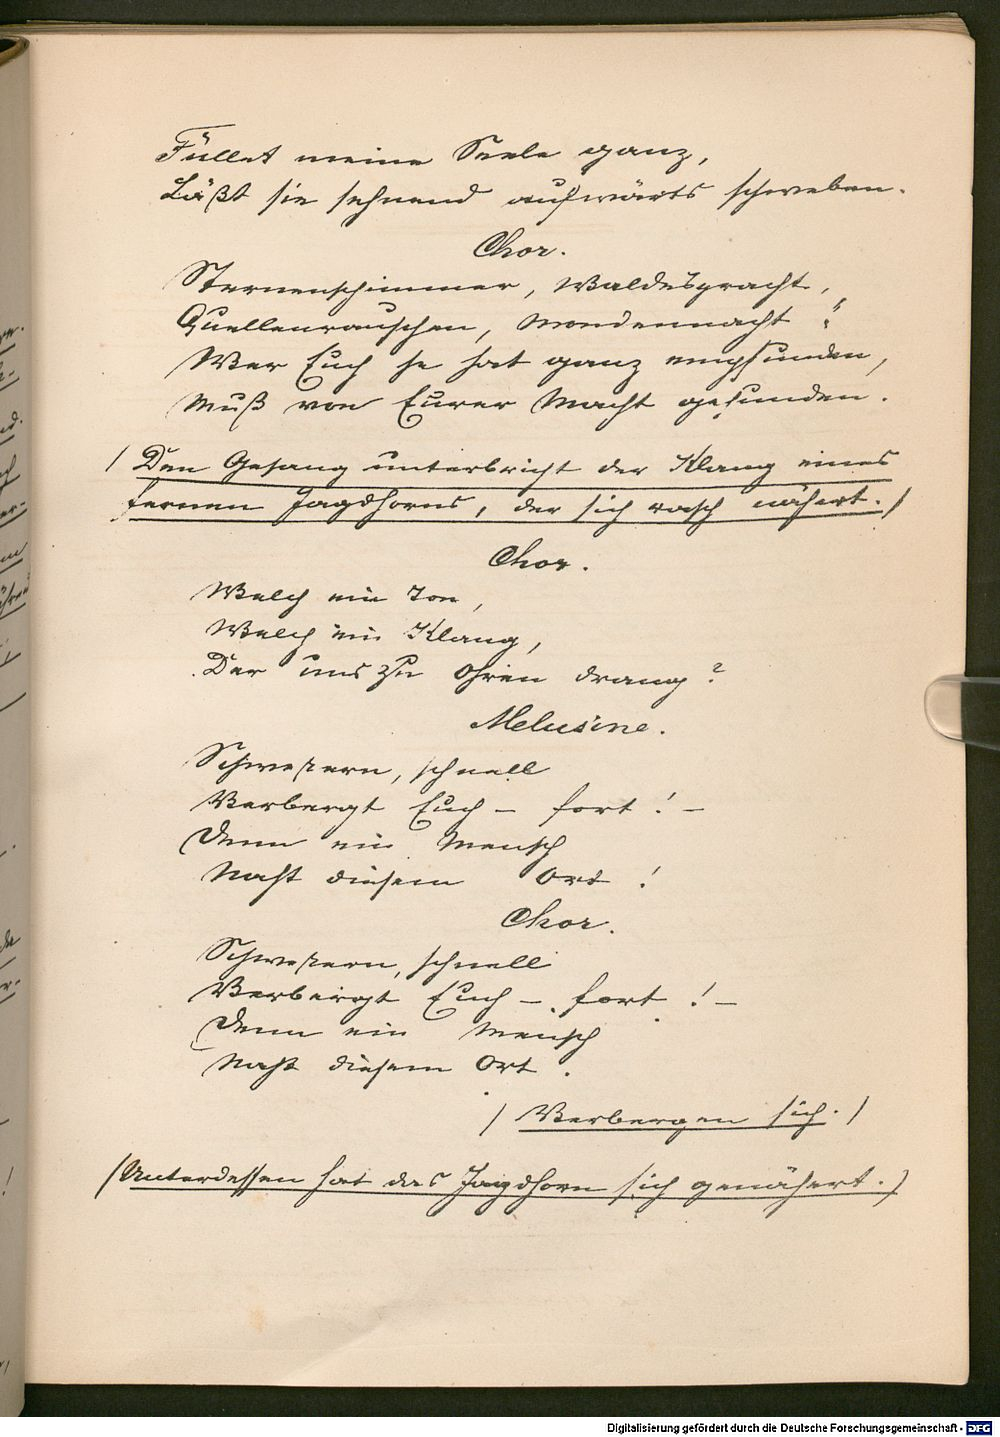 Füllet meine Seele ganz,
Läßt sie sehnend aufwärts schweben.
Chor.
Sternenschimmer, Waldespracht,
Quellenrauschen, Mondennacht "
Wer Euch je hat ganz empfunden,
Muß von Eurer Macht gesunden.
/ Den Gesang unterbricht der Klang eines
fernen Jagdhorns, der sich rasch nähert. /
Chor.
Welch ein Ton,
Welch ein Klang,
Der uns zu Ohren drang?
Melusine.
Schwestern, schnell
Verbergt Euch – fort! –
Denn ein Mensch
Naht diesem Ort!
Chor.
Schwestern, schnell
Verbergt Euch – fort! –
Denn ein Mensch
Naht diesem Ort.
/ Verbergen sich. /
(Unterdessen hat das Jagdhorn sich genähert.)
Digitalisierung gefördert durch die Deutsche Forschungsgemeinschaft - DFG